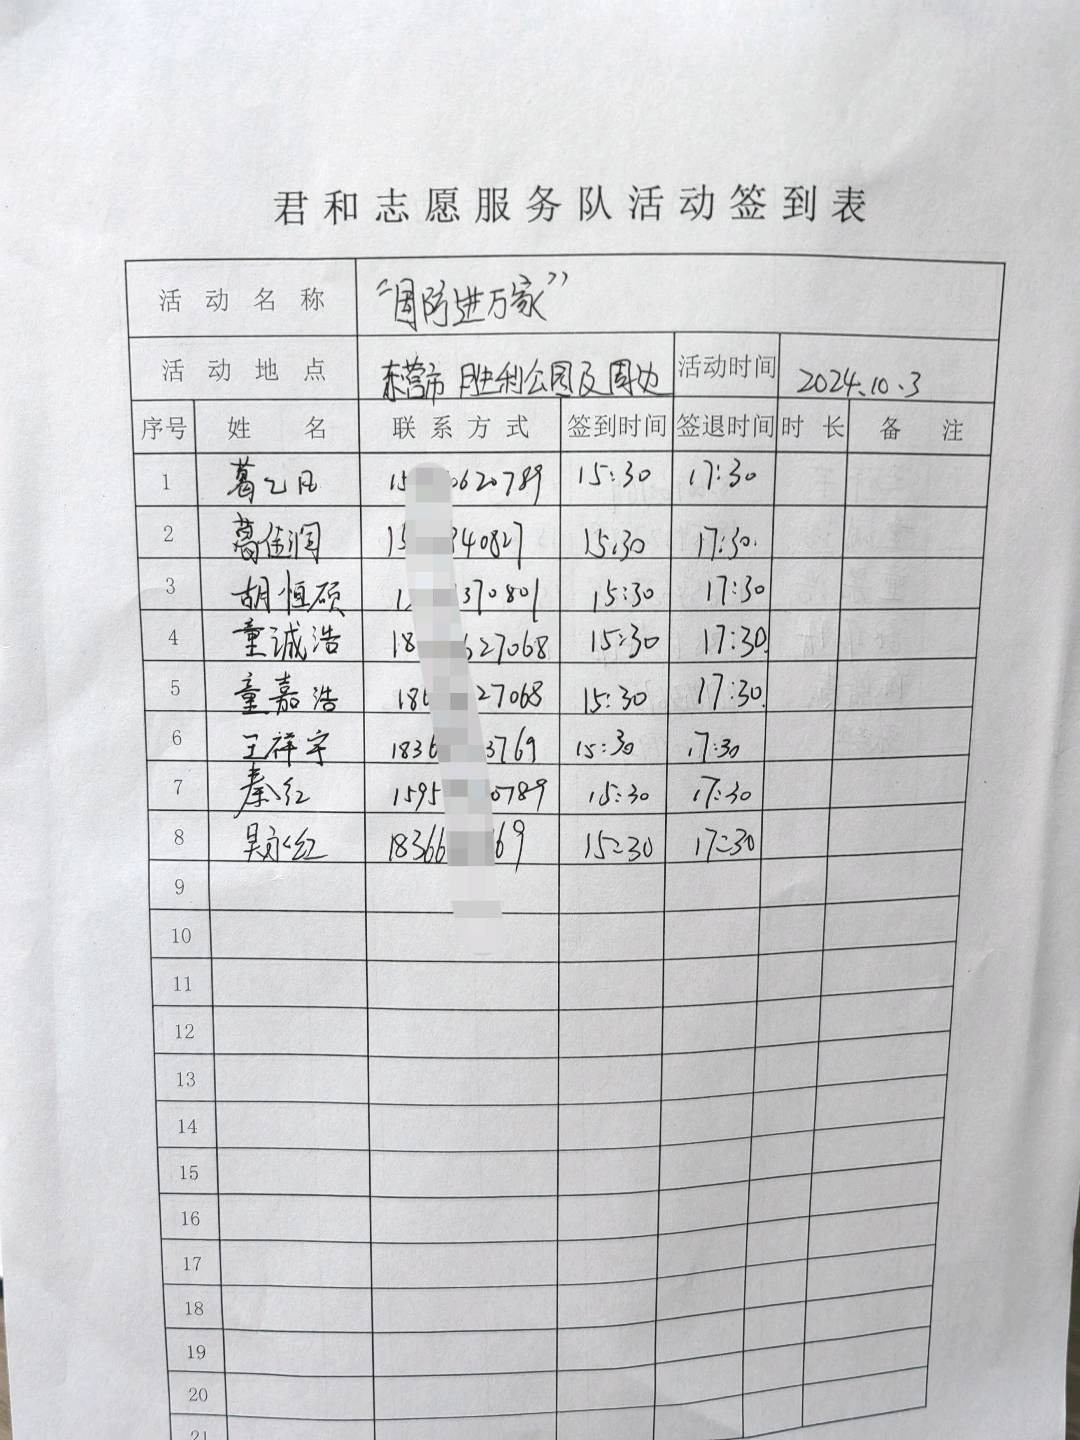 君和志愿服务队活动签到表
活动名称 “国防进万家”
活动地点 东营市 胜利公园及周边 活动时间 2024.10.3
序号 姓名 联系方式 签到时间 签退时间 时长 备注
1 葛之凡 15 0620789 15:30 17:30
2 葛佳润 15 940827 15:30 17:30
3 胡恒硕 1 370801 15:30 17:30
4 童诚浩 18 627068 15:30 17:30
5 童嘉浩 180 27068 15:30 17:30
6 王祥宇 1836 3769 15:30 17:30
7 秦红 1595 0789 15:30 17:30
8 吴永红 18366 69 15:30 17:30
9
10
11
12
13
14
15
16
17
18
19
20
21